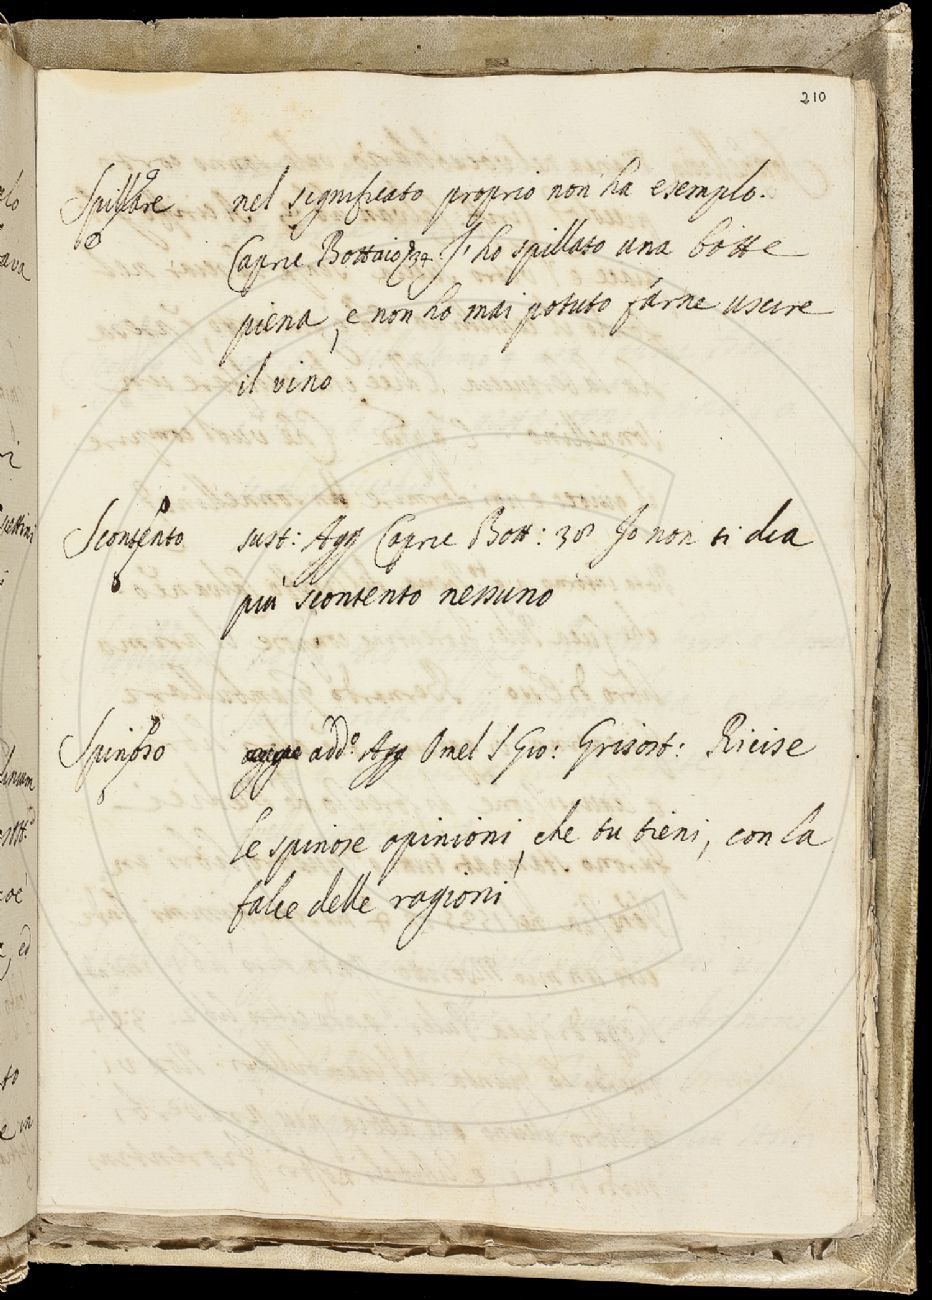 210
Spillare nel significato proprio non ha esempio.
Capric Bottaio 34 J' ho spillato una botte
piena, e non ho mai potuto farne uscire
il vino
Scontento sust: Agg Capric Bott: 38 Jo non ti dea
più scontento nessuno
Spinoso add.º Agg Omel S Gio: Grisost: Ricise
le spinose opinioni, che tu tieni, con la
falce delle ragioni